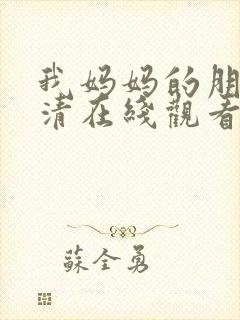 我妈妈的朋
清在綫觀看
蘇全勇